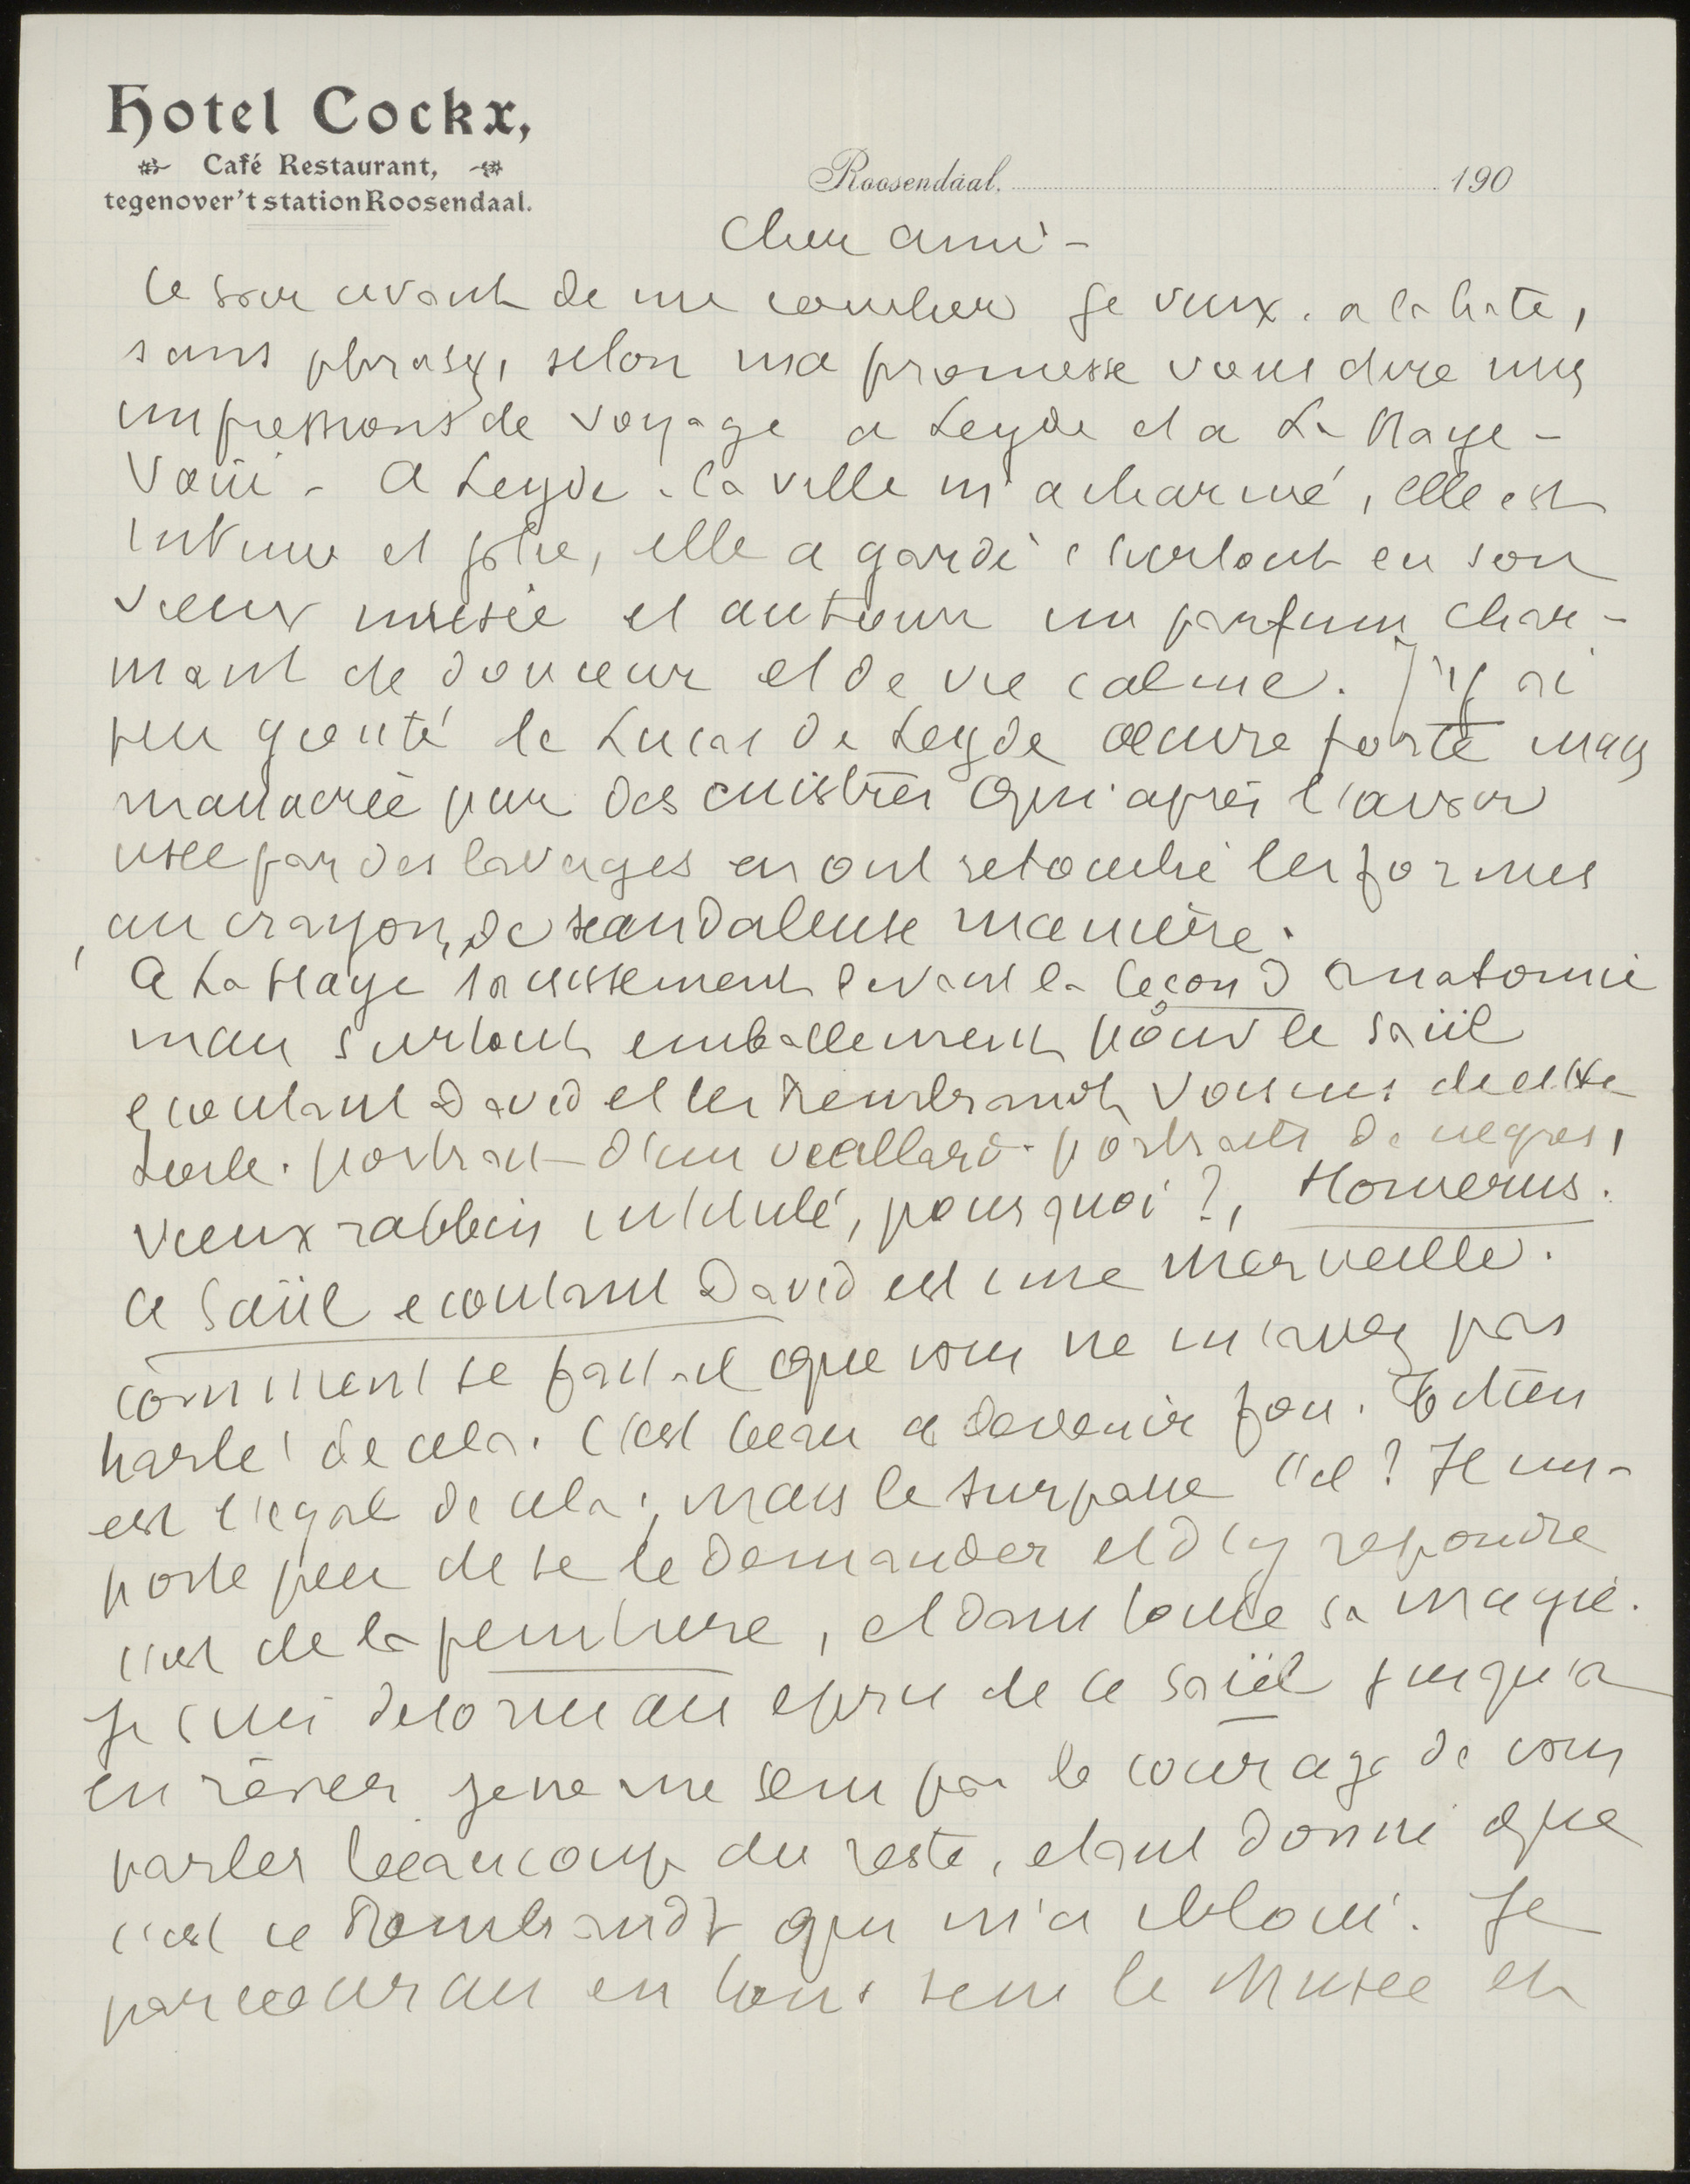 Hotel Cockx,
Café Restaurant,
tegenover 't station Roosendaal.
Roosendaal, 190
Cher ami -
Ce soir avant de me coucher je veux. a la hate,
sans phrases, selon ma promesse vous dire mes
impressions de voyage a Leyde et a La Haye -
Voici - A Leyde - la ville m'a charmé, elle est
intime et jolie, elle a gardé surtout en son
vieux musée et autour un parfum char-
mant de douceur et de vie calme. J'y ai
peu goûté le Lucas de Leyde œuvre forte mais
massacrée par des cuistres qui après l'avoir
usée par des lavages en ont retouché les formes
au crayon, de scandaleuse manière.
A La Haye saisissement devant la leçon d'anatomie
mais surtout emballement pour le saül
ecoutant David et les Rembrandt voisins de cette
toile. portrait d'un vieillard - portraits de negres,
vieux rabbin intitulé, pourquoi ?, Homerus.
Ce Saül ecoutant David est une merveille.
comment se fait-il que vous ne m'avez pas
parlé de cela. C'est beau a devenir fou. Titien
est l'egal de cela, mais le surpasse t'il ? Il im-
porte peu de se le demander et d'y repondre
c'est de la peinture, et dans toute sa magie.
Je suis desormais epris de ce saül jusqu'a
en rêver je ne me sens pas le courage de vous
parler beaucoup du reste, etant donné que
c'est ce Rembrandt qui m'a ebloui. Je
parcourais en tous sens le Musee et